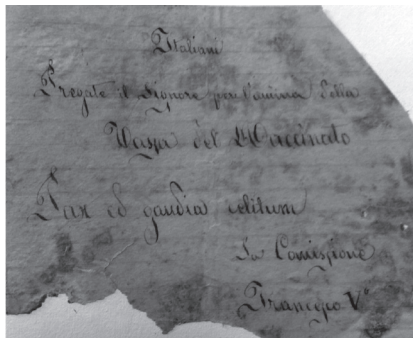 Italiani
Pregate il Signore per l'anima della
del
Pax ed gaudia celitum
La Comissione
Francesco V°